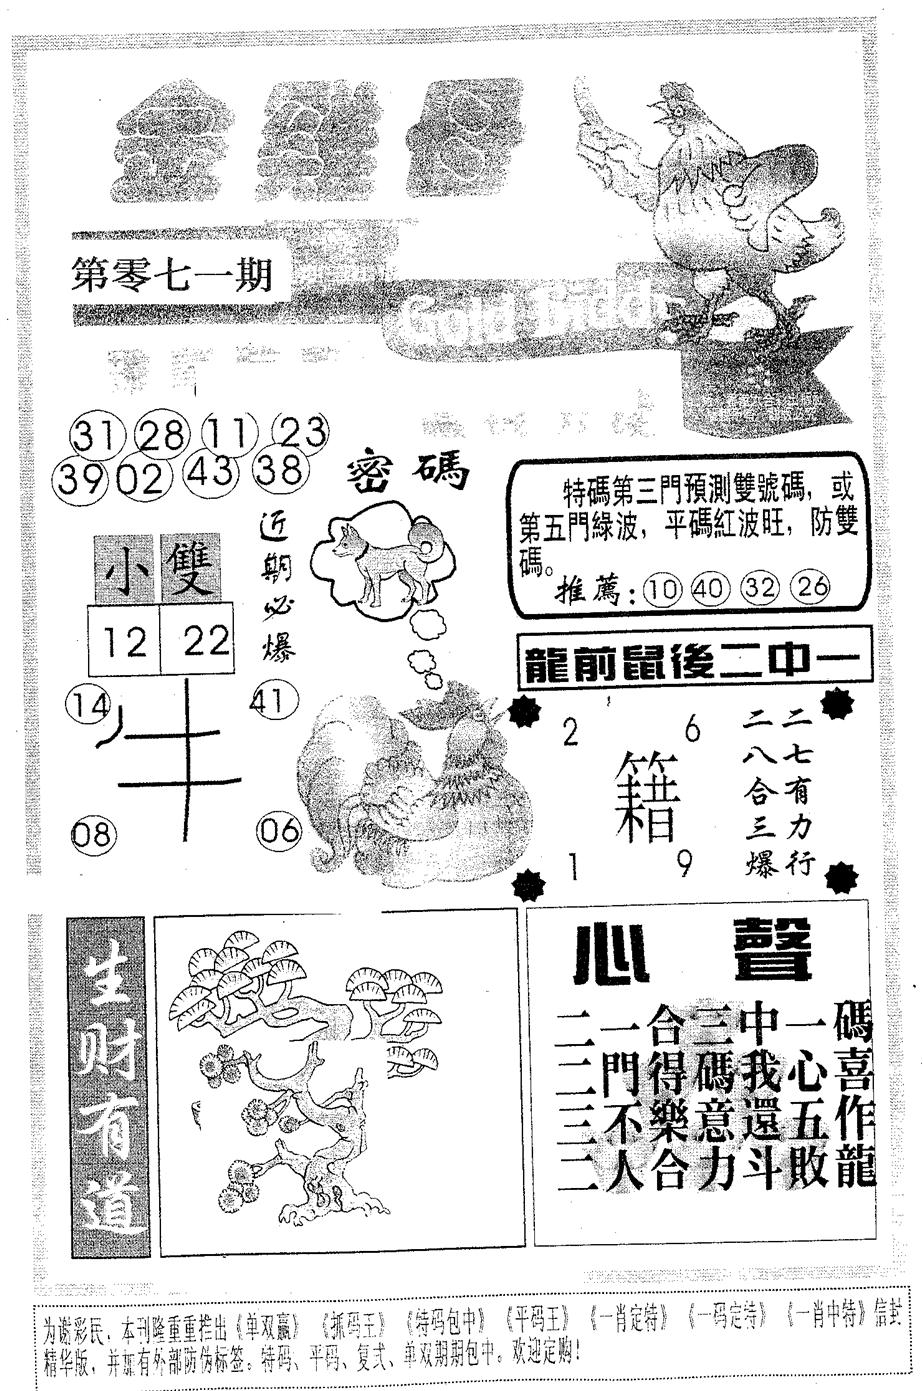 金雞母
第零七一期
31 28 11 23
39 02 43 38
密碼
近期必爆
小 雙
12 22
14 41
牛
08 06
特碼第三門預測雙號碼，或
第五門綠波，平碼紅波旺，防雙
碼。
推薦：10 40 32 26
龍前鼠後二中一
2 6
籍
1 9
二七有力行
二八合三爆
生财有道
心聲
二一合三中一碼
二門得碼我心喜
三不樂意還五作
二人合力斗敗龍
为谢彩民，本刊隆重重推出《单双赢》《抓码王》《特码包中》《平码王》《一肖定特》《一码定特》《一肖中特》信封
精华版，并加有外部防伪标签。特码、平码、复式、单双期期包中。欢迎定购！